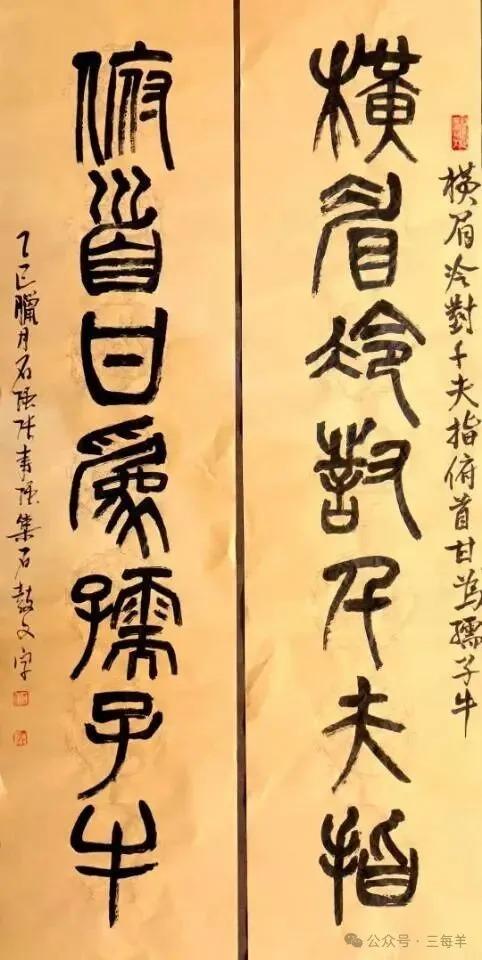 橫眉冷對千夫指俯首甘為孺子牛
橫眉冷對千夫指
俯首甘爲孺子牛
乙巳臘月石集石鼓文字
公众号 · 三每羊